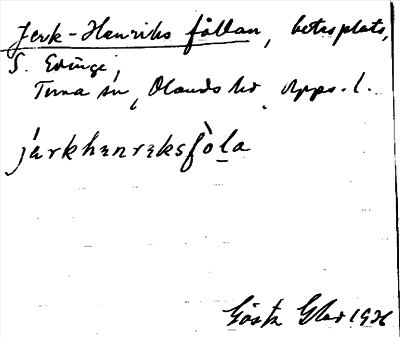 Jerk-Henriks fållan, betesplats,
S. Edinge,
Tuna sn, Olands hd, Upps. l.
järkhænrɛksfò̀la
Gösta Glar 1936